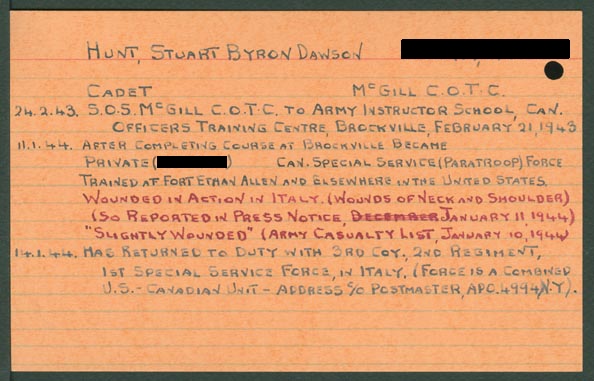 HUNT, STUART BYRON DAWSON
CADET McGILL C.O.T.C.
24.2.43. S.O.S. McGILL C.O.T.C. TO ARMY INSTRUCTOR SCHOOL, CAN.
OFFICERS TRAINING CENTRE, BROCKVILLE, FEBRUARY 21, 1943
11.1.44. AFTER COMPLETING COURSE AT BROCKVILLE BECAME
PRIVATE ( ) CAN. SPECIAL SERVICE (PARATROOP) FORCE
TRAINED AT FORT ETHAN ALLEN AND ELSEWHERE IN THE UNITED STATES.
WOUNDED IN ACTION IN ITALY. (WOUNDS OF NECK AND SHOULDER)
(SO REPORTED IN PRESS NOTICE, DECEMBER JANUARY 11 1944)
"SLIGHTLY WOUNDED" (ARMY CASUALTY LIST, JANUARY 10, 1944)
14.1.44. HAS RETURNED TO DUTY WITH 3RD COY., 2ND REGIMENT,
1ST SPECIAL SERVICE FORCE, IN ITALY, (FORCE IS A COMBINED
U.S.-CANADIAN UNIT - ADDRESS C/O POSTMASTER, APO. 4994, N.Y.).